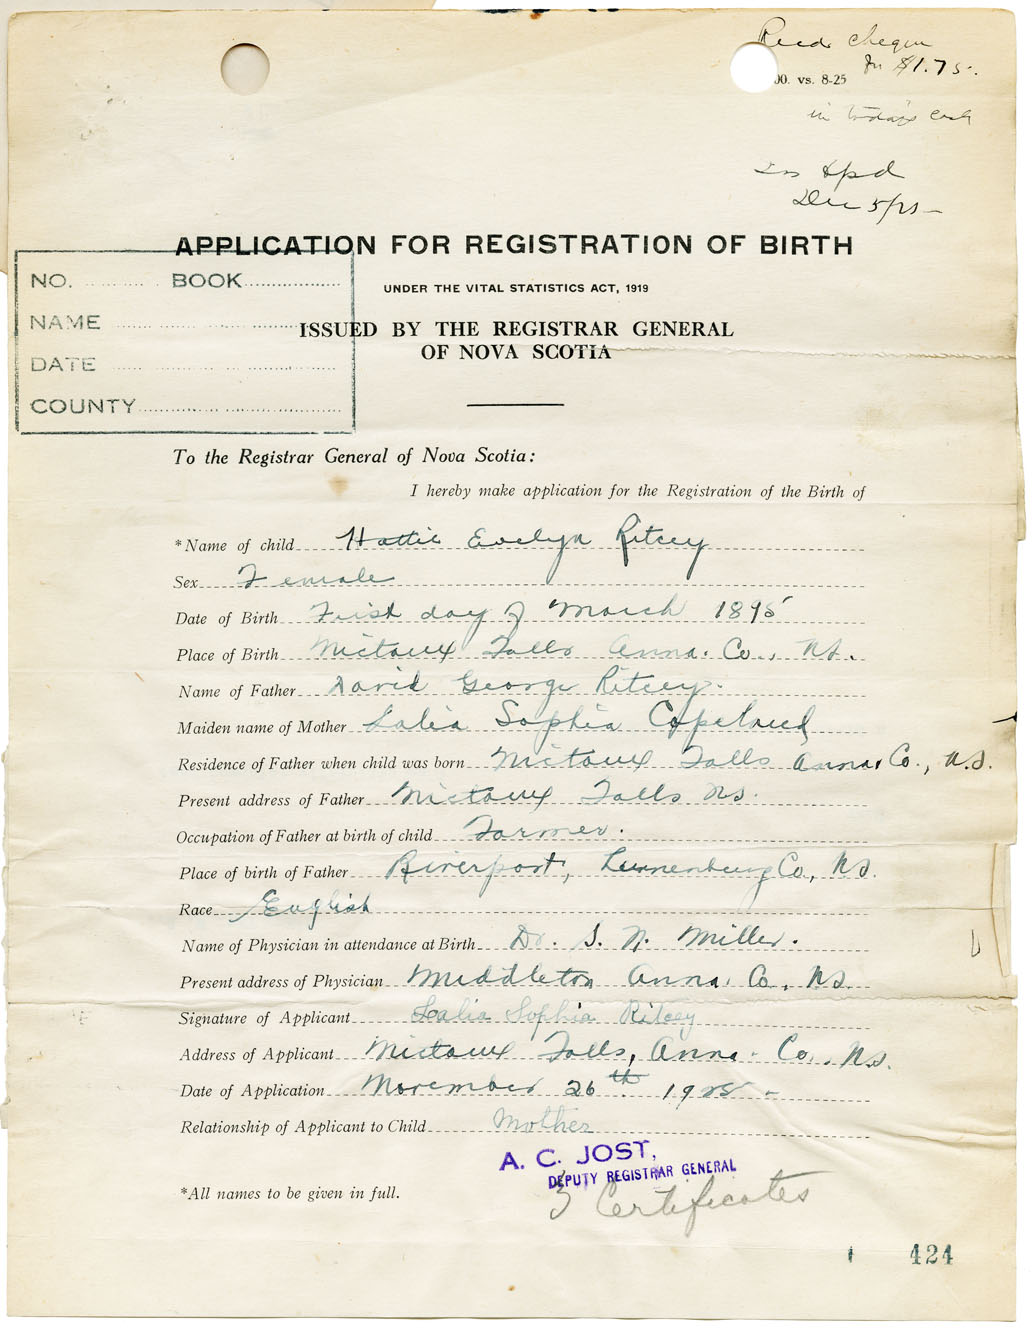 Recd. cheque
for $1.75-.
00. vs. 8-25
in today's cash
Dec 5/25-
APPLICATION FOR REGISTRATION OF BIRTH
UNDER THE VITAL STATISTICS ACT, 1919
ISSUED BY THE REGISTRAR GENERAL
OF NOVA SCOTIA
NO. BOOK
NAME
DATE
COUNTY
To the Registrar General of Nova Scotia:
I hereby make application for the Registration of the Birth of
*Name of child Hattie Evelyn Ritcey
Sex Female
Date of Birth First day of March 1895
Place of Birth Nictaux Falls Anna. Co., N.S.
Name of Father David George Ritcey.
Maiden name of Mother Lalia Sophia Copeland
Residence of Father when child was born Nictaux Falls Anna. Co., N.S.
Present address of Father Nictaux Falls N.S.
Occupation of Father at birth of child Farmer.
Place of birth of Father Riverport, Lunenburg Co., N.S.
Race English
Name of Physician in attendance at Birth Dr. S. N. Miller.
Present address of Physician Middleton Anna. Co., N.S.
Signature of Applicant Lalia Sophia Ritcey
Address of Applicant Nictaux Falls, Anna. Co., N.S.
Date of Application November 26th. 1925-
Relationship of Applicant to Child Mother
A. C. JOST,
DEPUTY REGISTRAR GENERAL
*All names to be given in full.
3 Certificates
424